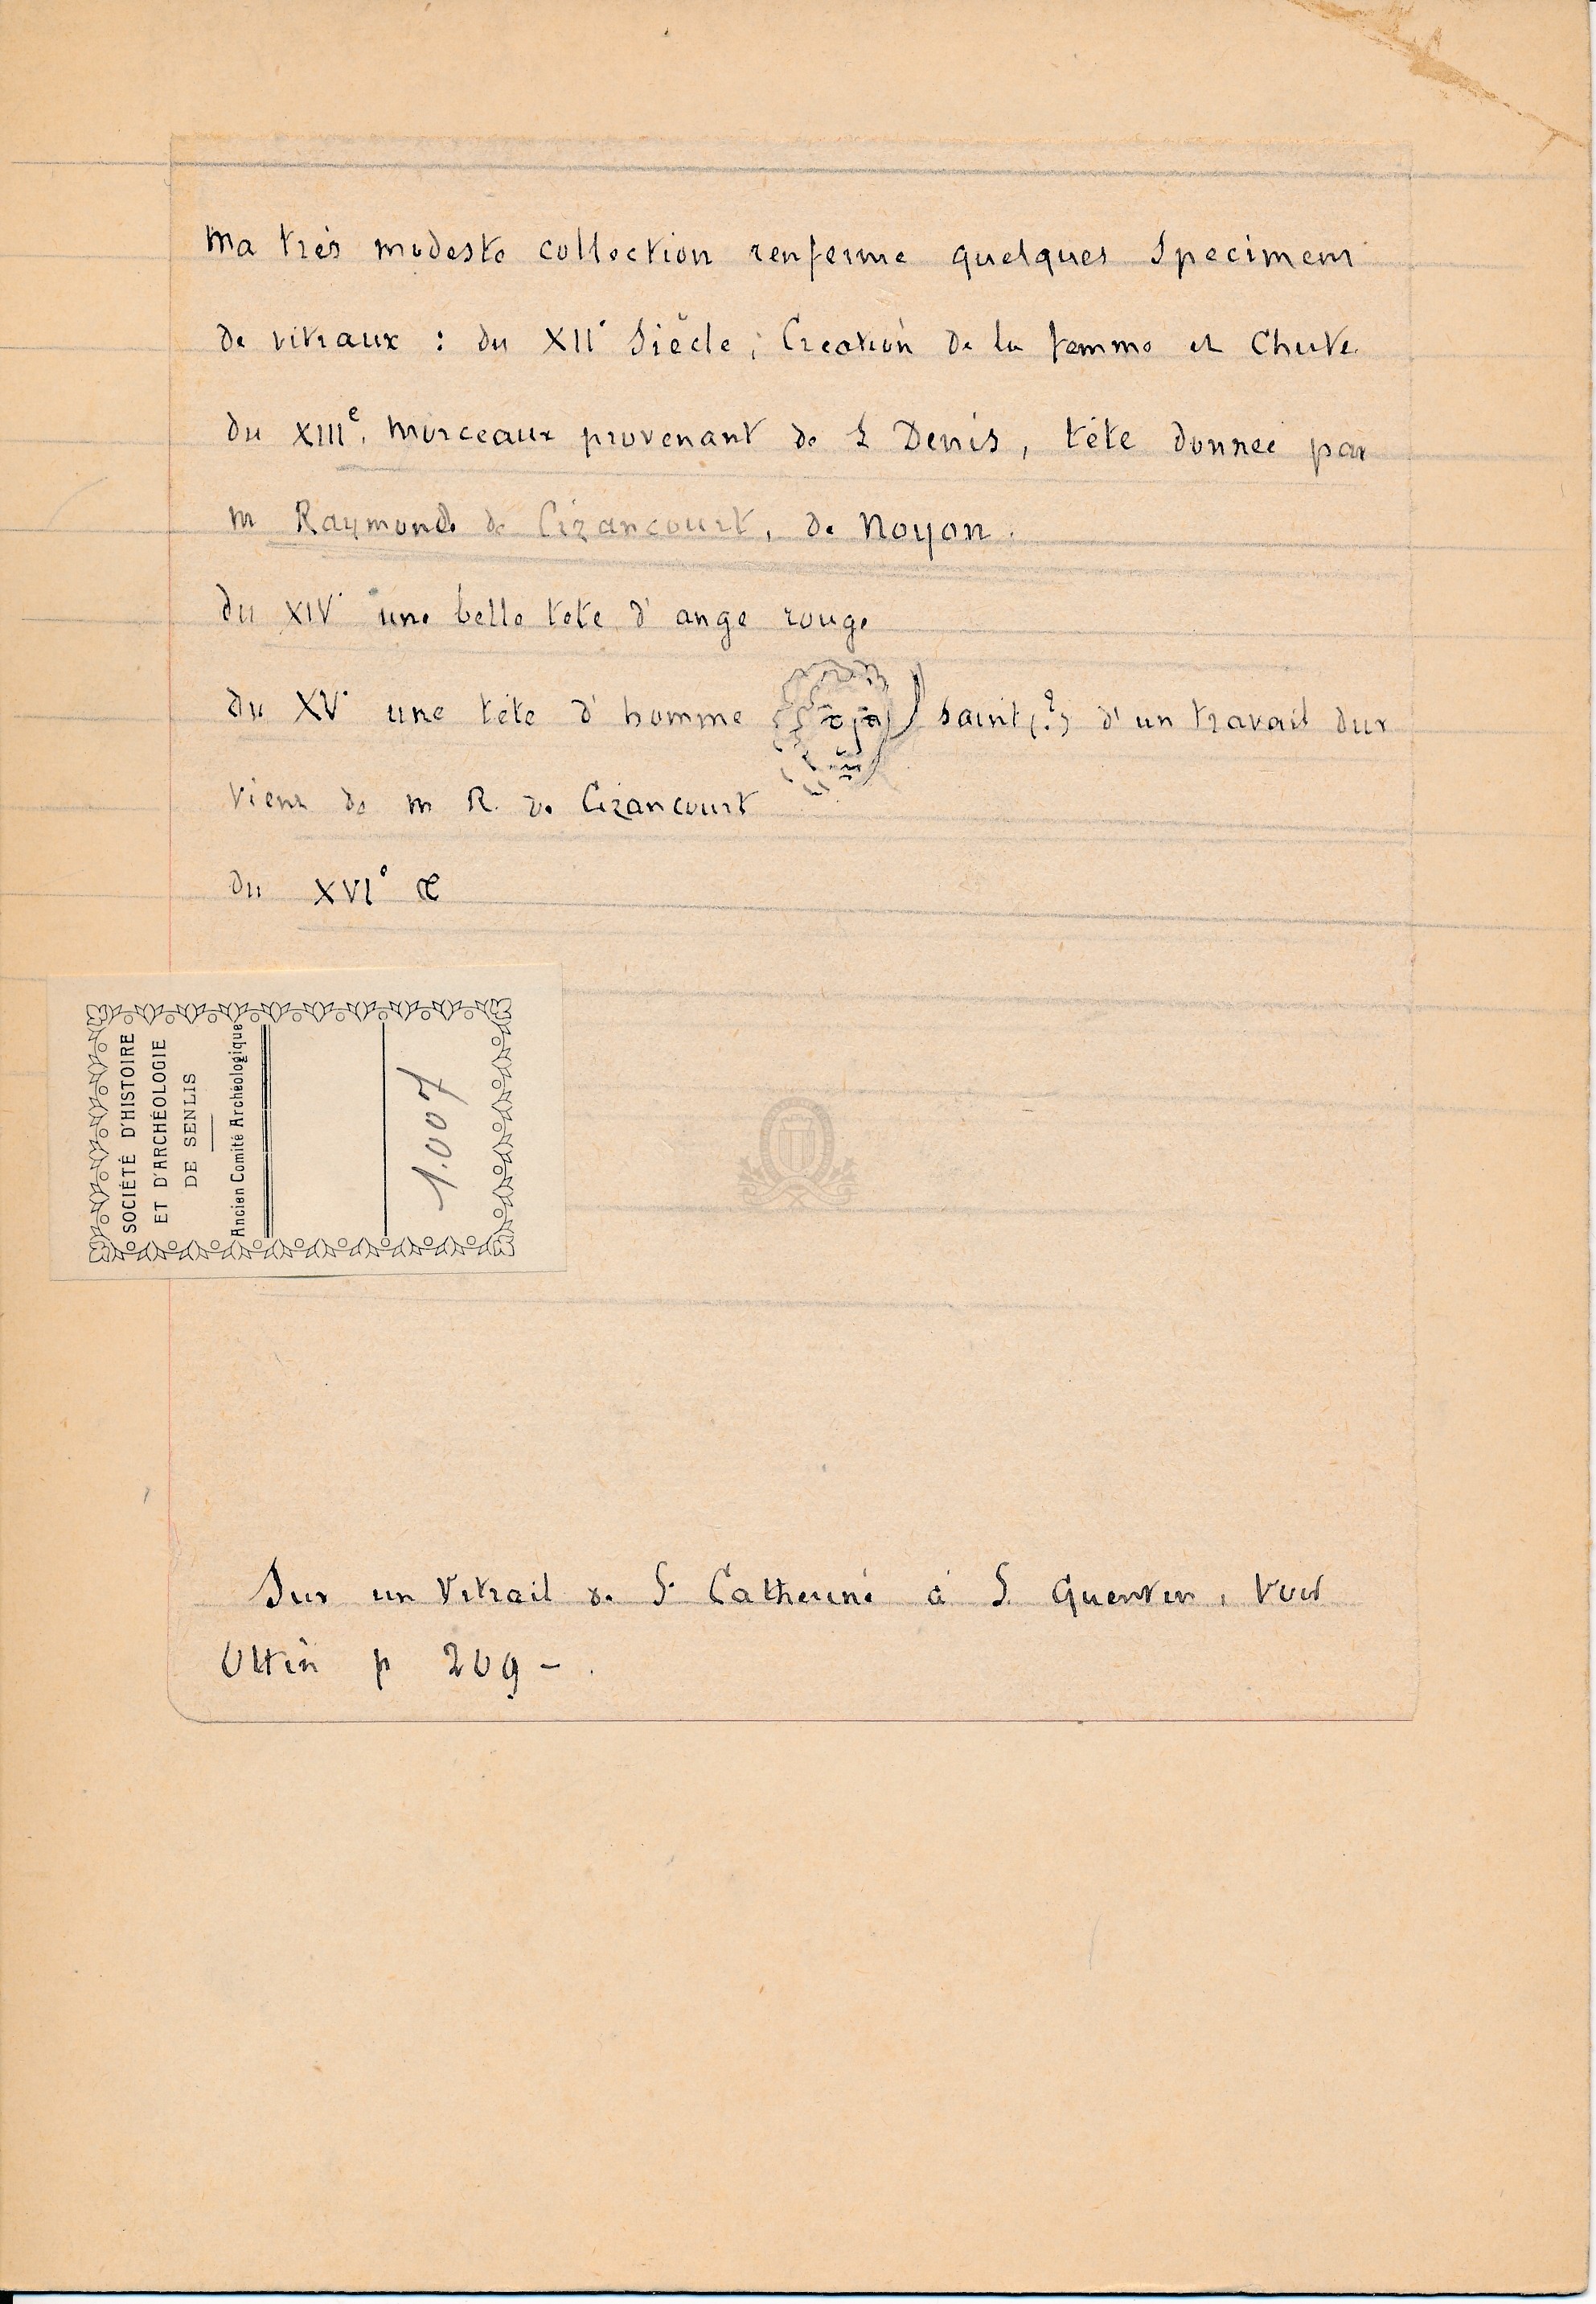 Ma très modeste collection renferme quelques specimens
de vitraux : du XII° Siècle ; Creation de la femme et Chute
du XIIIe, Morceaux provenant de S Denis, tête donnee par
M Raymond de Cizancourt, de Noyon.
du XIV° une belle tete d'ange rouge
du XV° une tête d'homme saint (?) d'un travail dur
vient de M R. de Cizancourt
du XVI°
SOCIÉTÉ D'HISTOIRE
ET D'ARCHÉOLOGIE
DE SENLIS
Ancien Comité Archéologique
1.007
Sur un Vitrail de Ste Catherine à S. Quentin, voir
Ottin p 209 -.